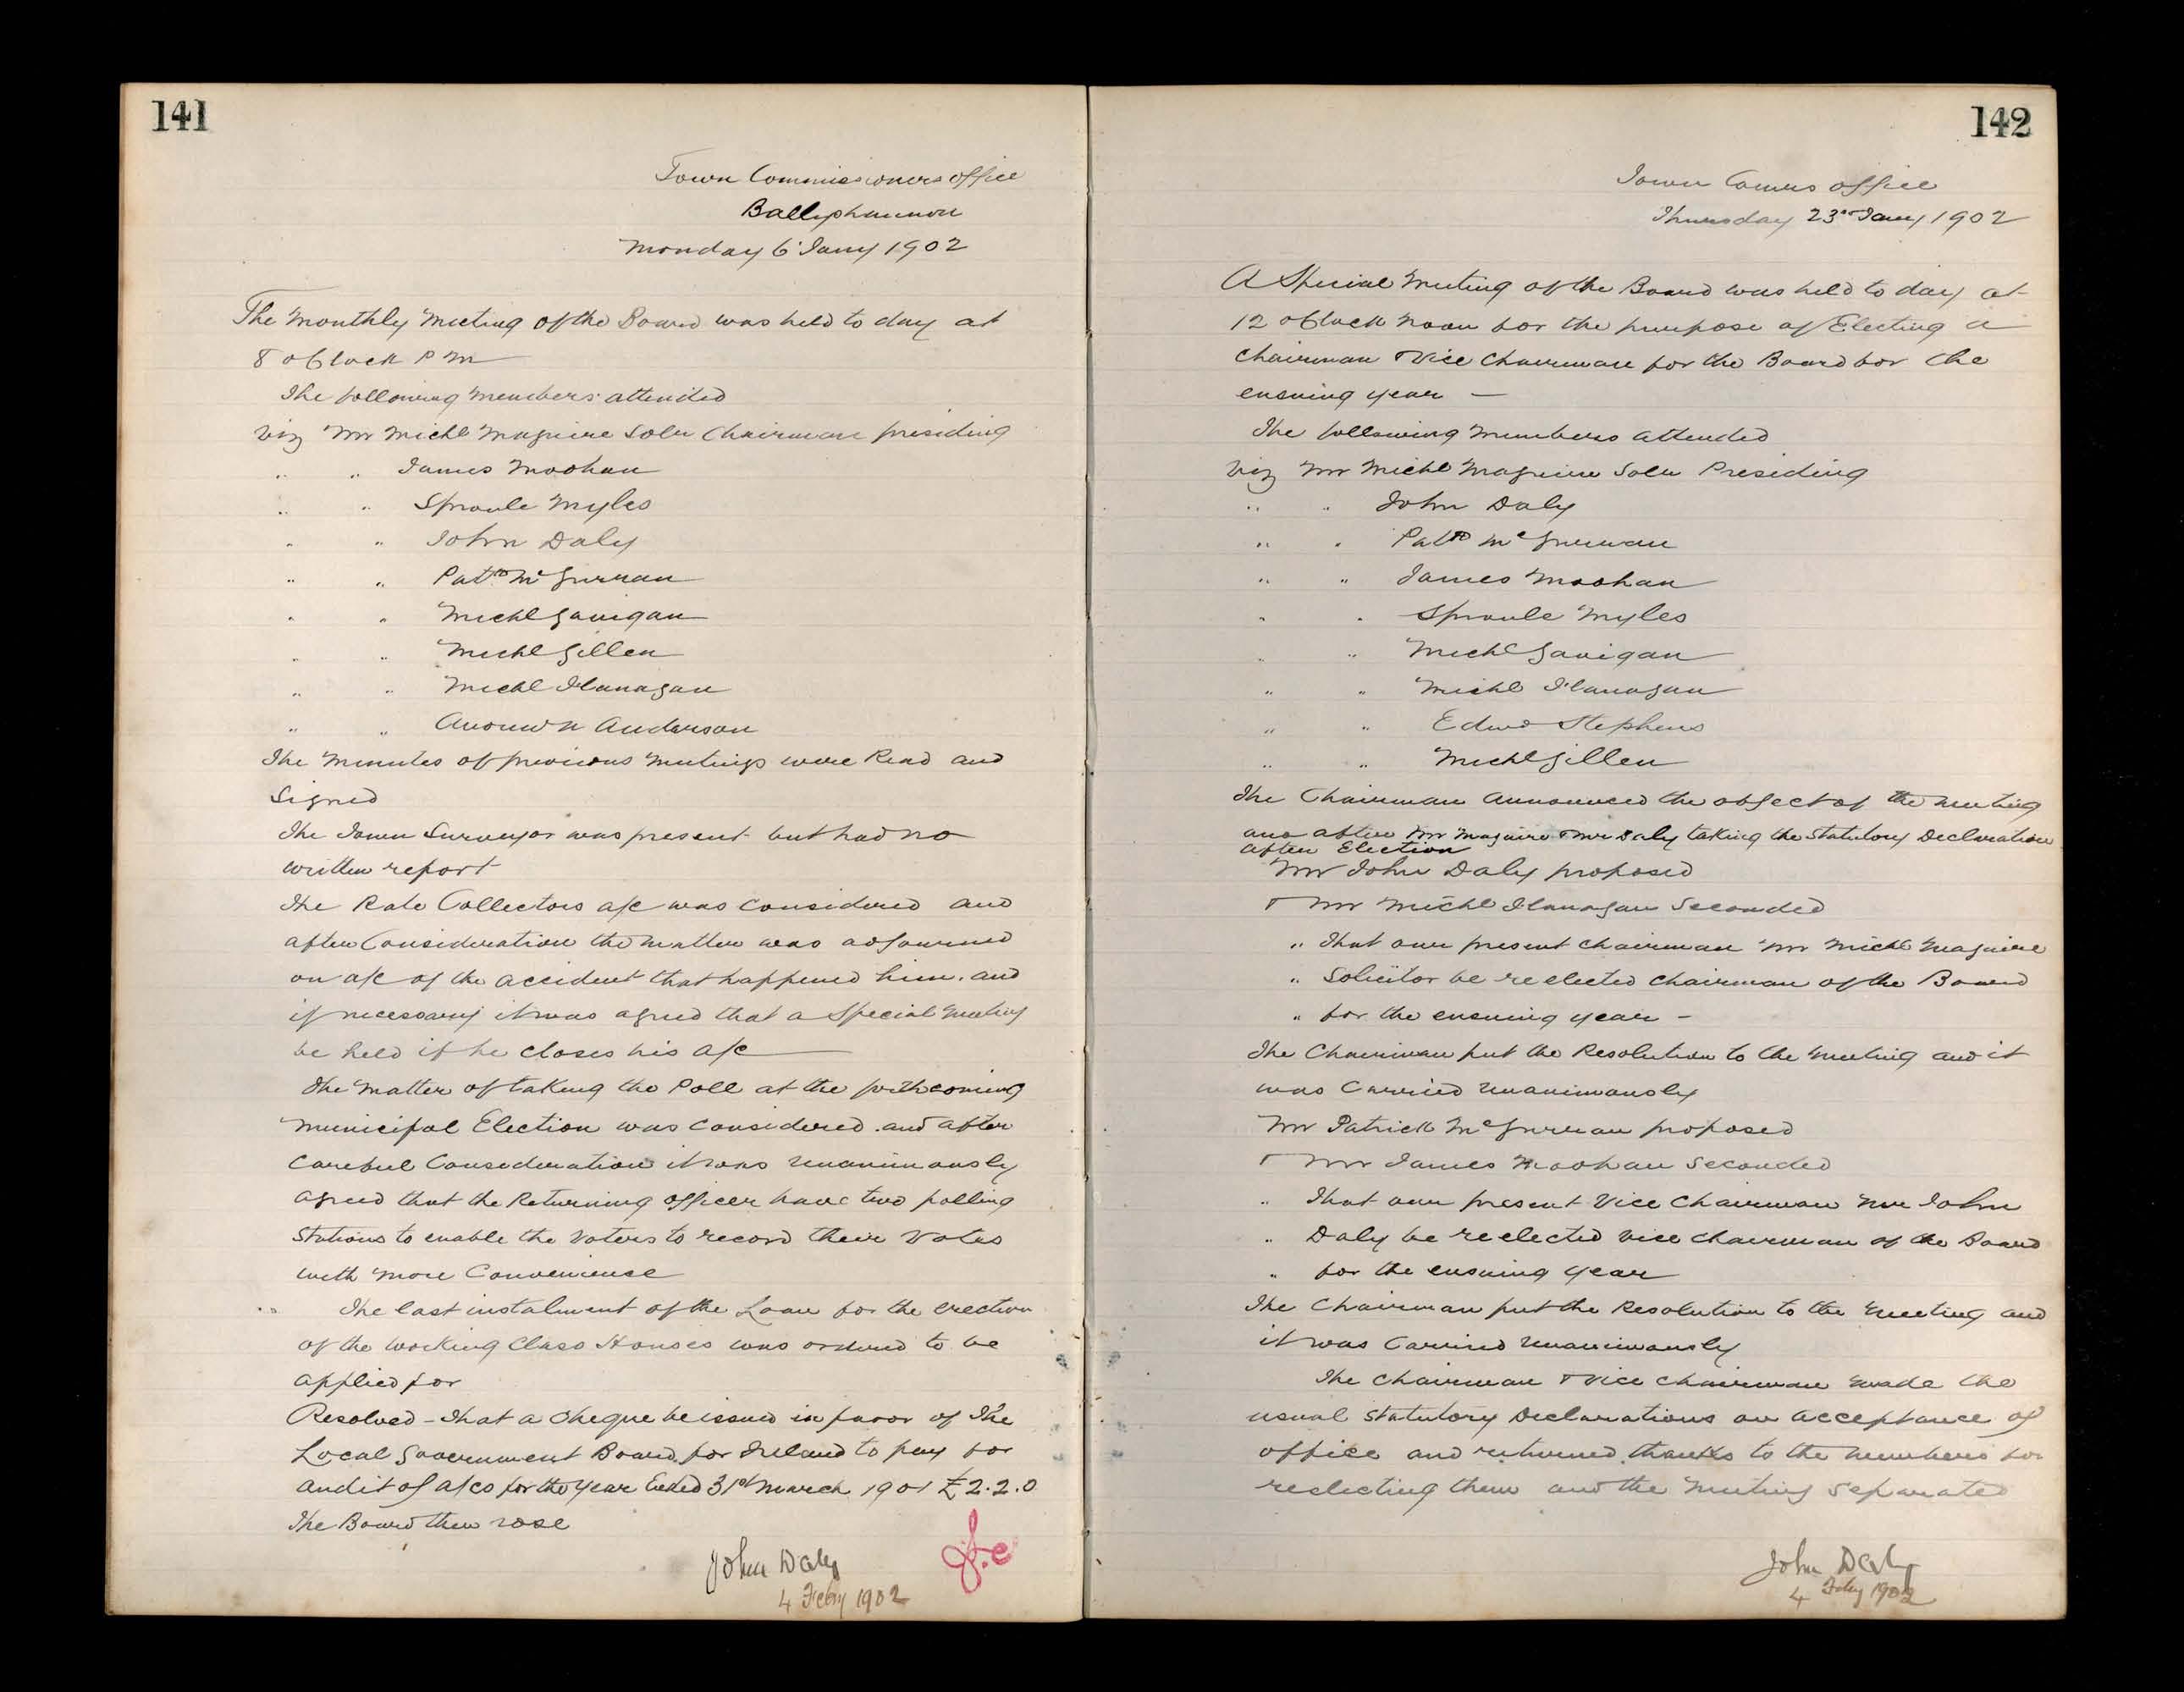 141
Town Commissioners office
Ballyshannon
Monday 6 Jany 1902
The Monthly Meeting of the Board was held to day at
8 o Clock P M
The following Members attended
Viz Mr Michl Maguire Solr Chairman presiding
" " James Moohan
" " Sproule Myles
" " John Daly
" " Patk Mc Gurran
" " Michl Gavigan
" " Michl Gillen
" " Michl Flanagan
" " Anderson
The Minutes of previous Meetings were Read and
Signed
The Town Surveyor was present but had no
written report
The Rate Collectors a/c was Considered and
after Consideration the matter was adjourned
on a/c of the accident that happened him. and
if necessary it was agreed that a Special Meeting
be held if he closes his a/c
The Matter of taking the Poll at the forthcoming
Municipal Election was Considered and after
Careful Consideration it was Unanimously
agreed that the Returning Officer have two polling
Stations to enable the Voters to record their Votes
with More Convenience
The last instalment of the Loan for the erection
of the Working Class Houses was ordered to be
applied for
Resolved - That a Cheque be issued in favor of The
Local Government Board for Ireland to pay for
audit of a/cs for the Year Ended 31st March 1901 £2.2.0
The Board then rose
John Daly
4 Feby 1902
142
Town Comrs office
Thursday 23rd Jany 1902
A Special Meeting of the Board was held to day at
12 o Clock Noon for the purpose of Electing a
Chairman & Vice Chairman for the Board for the
ensuing year —
The following Members attended
Viz Mr Michl Maguire Solr Presiding
" " John Daly
" " Patk Mc Gurran
" " James Moohan
" " Sproule Myles
" " Michl Gavigan
" " Michl Flanagan
" " Edwd Stephens
" " Michl Gillen
The Chairman Announced the object of the Meeting
and after Mr Maguire & Mr Daly taking the Statutory Declaration
after Election
Mr John Daly proposed
& Mr Michl Flanagan Seconded
" That our present Chairman Mr Michl Maguire
" Solicitor be re elected Chairman of the Board
" for the ensuing year -
The Chairman put the Resolution to the Meeting and it
was Carried Unanimously
Mr Patrick Mc Gurran proposed
& Mr James Moohan Seconded
" That our present Vice Chairman Mr John
" Daly be re elected Vice Chairman of the Board
" for the ensuing year
The Chairman put the Resolution to the Meeting and
it was Carried Unanimously
The Chairman & Vice Chairman made the
usual Statutory Declarations on acceptance of
office and returned thanks to the Members for
reelecting them and the Meeting Separated
John Daly
4 Feby 1902